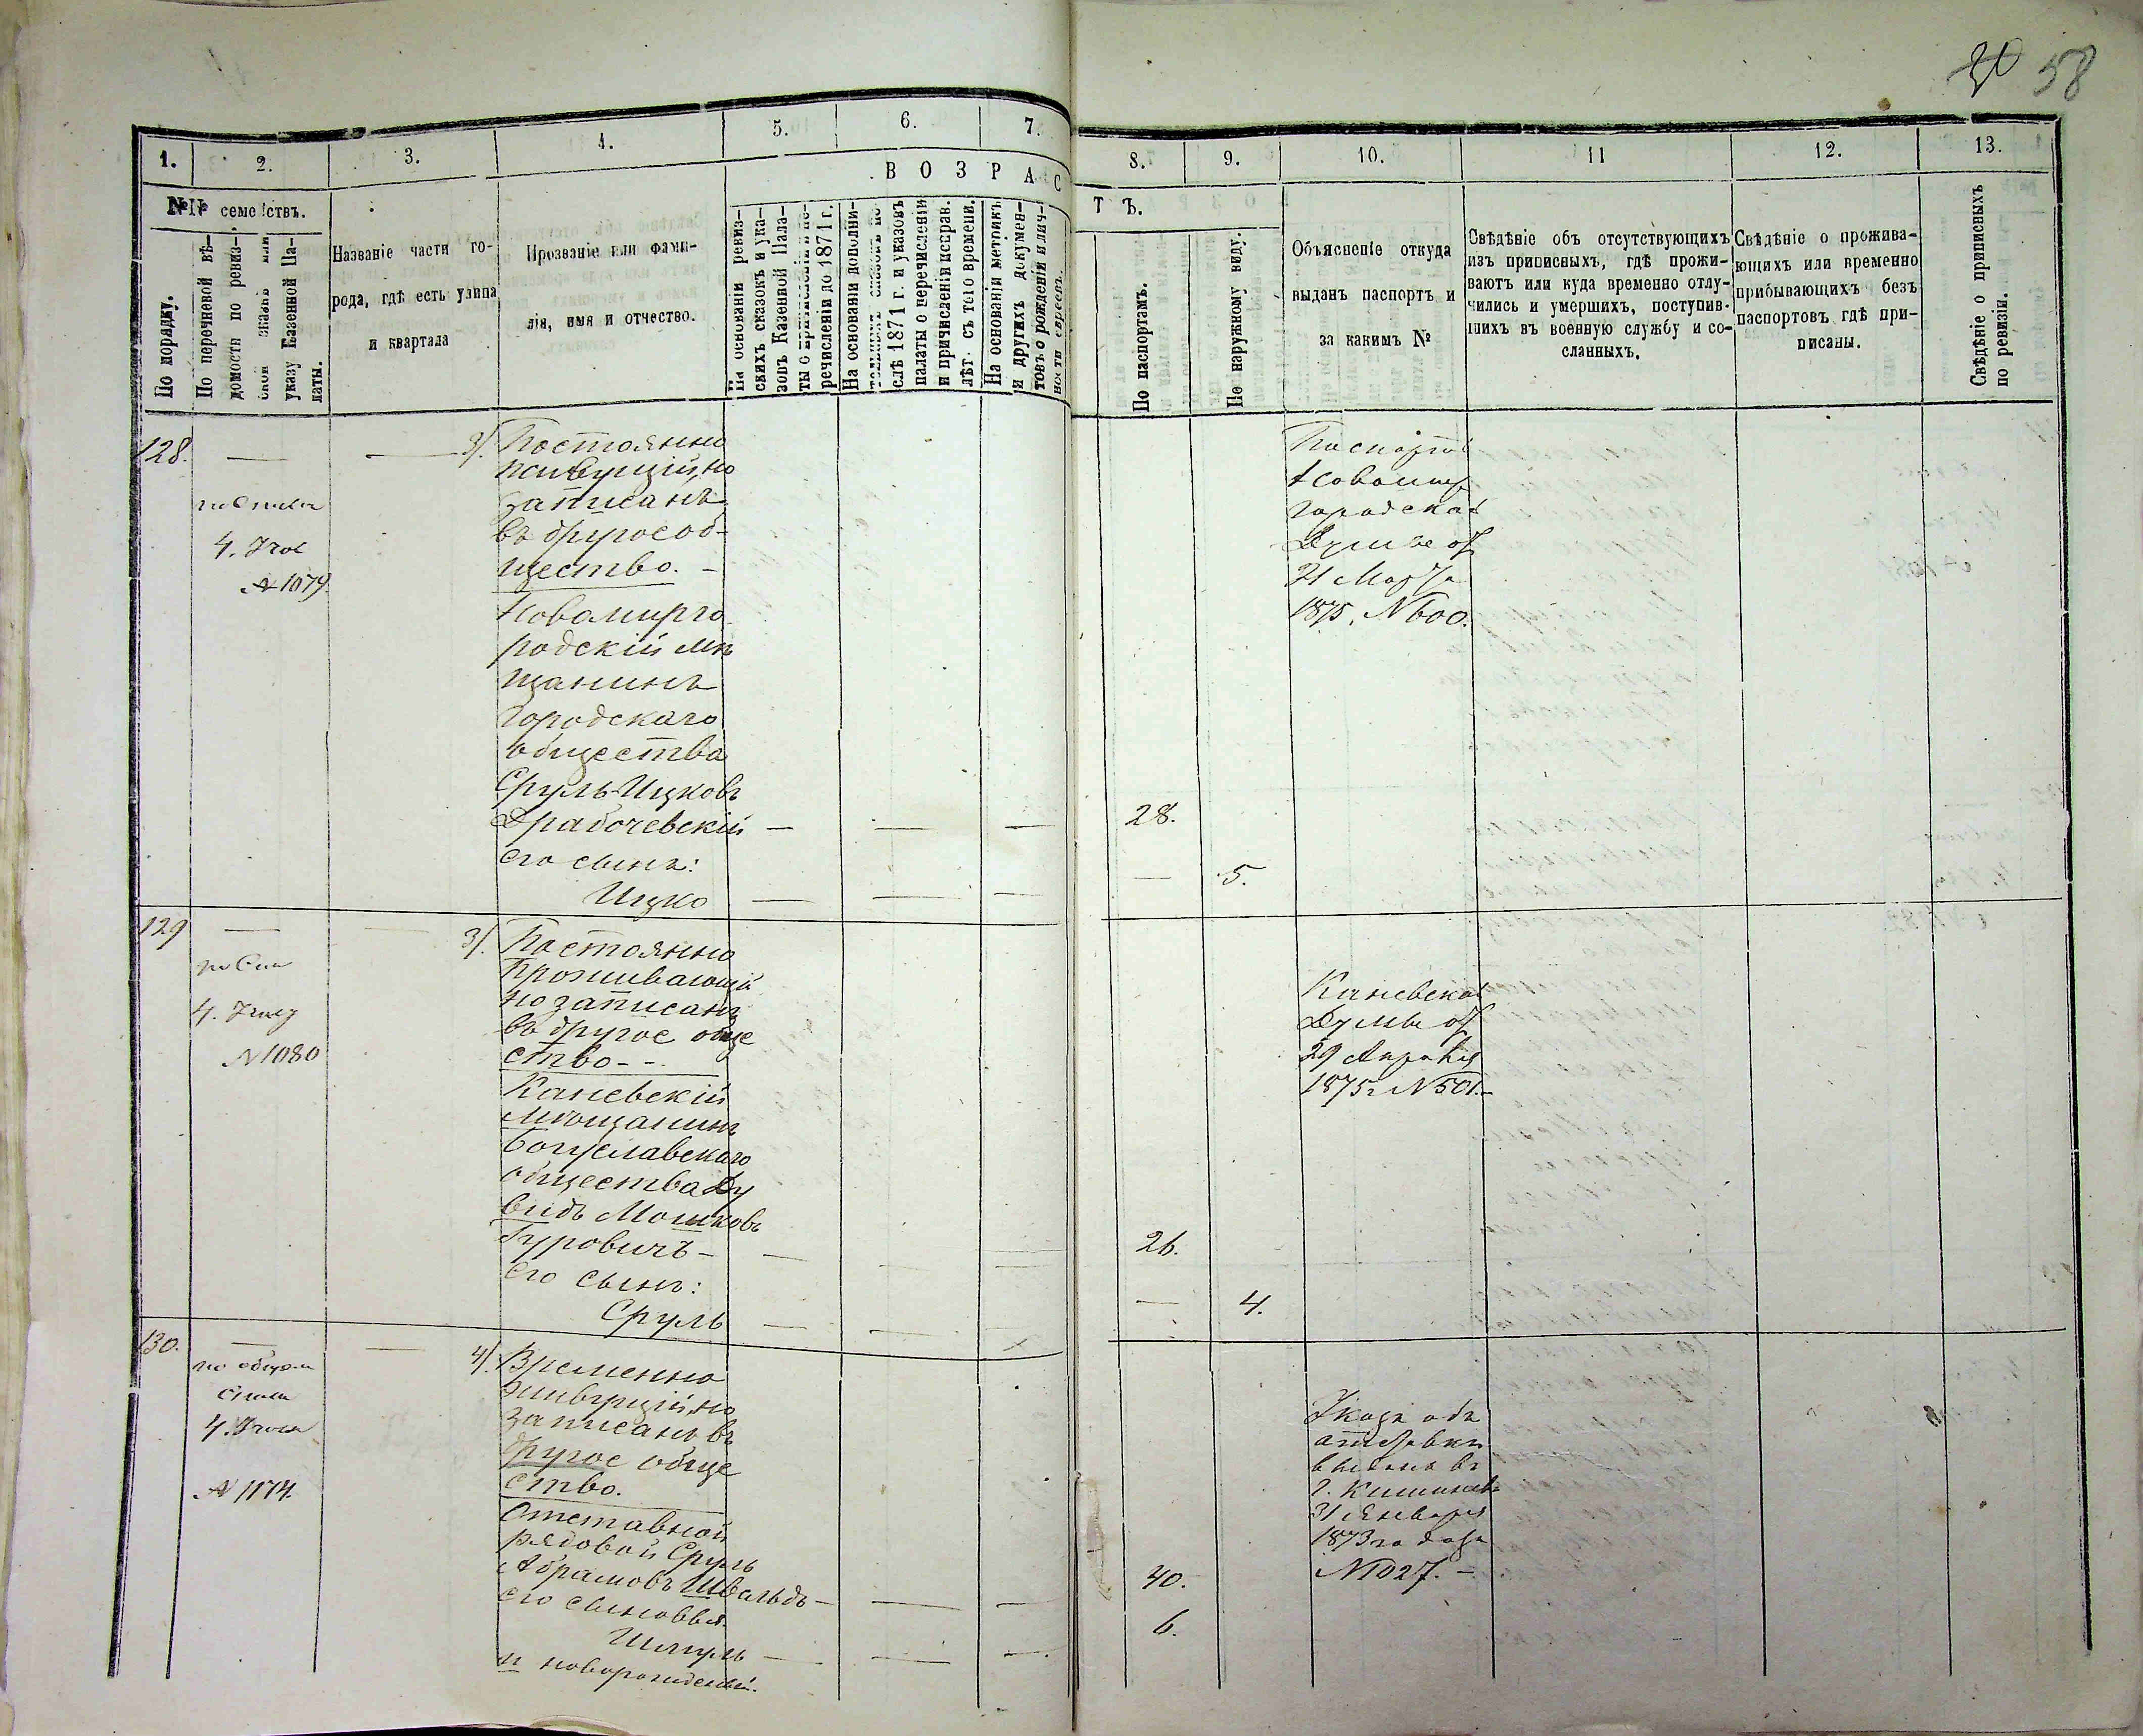 30 58
1. 2. 3. 4. 5. 6. 7. 8. 9. 10. 11 12. 13.
В О З Р А С Т Ъ.
№№ семействъ.
По порядку.
По перечневой вѣ-
домости по ревиз-
ской сказкѣ или
указу Казенной Па-
латы.
Названіе части го-
рода, гдѣ есть улица
и квартала
Прозваніе или фами-
лія, имя и отчество.
На основаніи ревиз-
скихъ сказокъ и ука-
зовъ Казенной Пала-
ты о причисленіи и пе-
речисленіи до 1871 г.
На основаніи дополни-
слѣ 1871 г. и указовъ
палаты о перечисленіи
и причисленіи несрав.
лѣт. съ того времени.
На основаніи метрикъ
и другихъ докумен-
товъ о рожденіи и лич-
ности евреевъ.
По паспортамъ.
По наружному виду.
Объясненіе откуда
выданъ паспортъ и
за какимъ №
Свѣдѣніе объ отсутствующихъ
изъ приписныхъ, гдѣ прожи-
ваютъ или куда временно отлу-
чились и умершихъ, поступив-
шихъ въ военную службу и со-
сланныхъ.
Свѣдѣніе о прожива-
ющихъ или временно
прибывающихъ безъ
паспортовъ гдѣ при-
писаны.
Свѣдѣніе о приписныхъ
по ревизіи.
128. — — 3/. Постоянно
живущій, но
записанъ
въ другое об-
щество. -
4.
№ 1079.
Новомирго
родскій мѣ
щанинъ
Городскаго
общества
Сруль Ицковъ
Драбочевскій — — — 28.
его сынъ:
Ицко — — — — 5.
Паспортъ
Новомир
городской
Думы от
31 Марта
1875. № 600.
129 — — 3/. Постоянно
проживающій
но записанъ
въ другое обще
ство - -
4.
№ 1080
Каневскій
мѣщанинъ
Богуславскаго
общества Ду
видъ Мошковъ
Гуровичъ - — — — 26.
его сынъ:
Сруль — — — 4.
Каневской
Думы от
29 Апрѣля
1875г № 501.-
130. — — 4/. Временно
живущій, но
записанъ въ
другое обще
ство.
4.
№ 1174.
Отставной
рядовой Сруль
Абрамовъ Швальдъ — — — 40.
его сыновья.
Шмуль — — — 6.
и новорожденный.
Указъ объ
отставкѣ
выданъ въ
г. Кишиневѣ
31 Января
1873 года
№ 1027. -